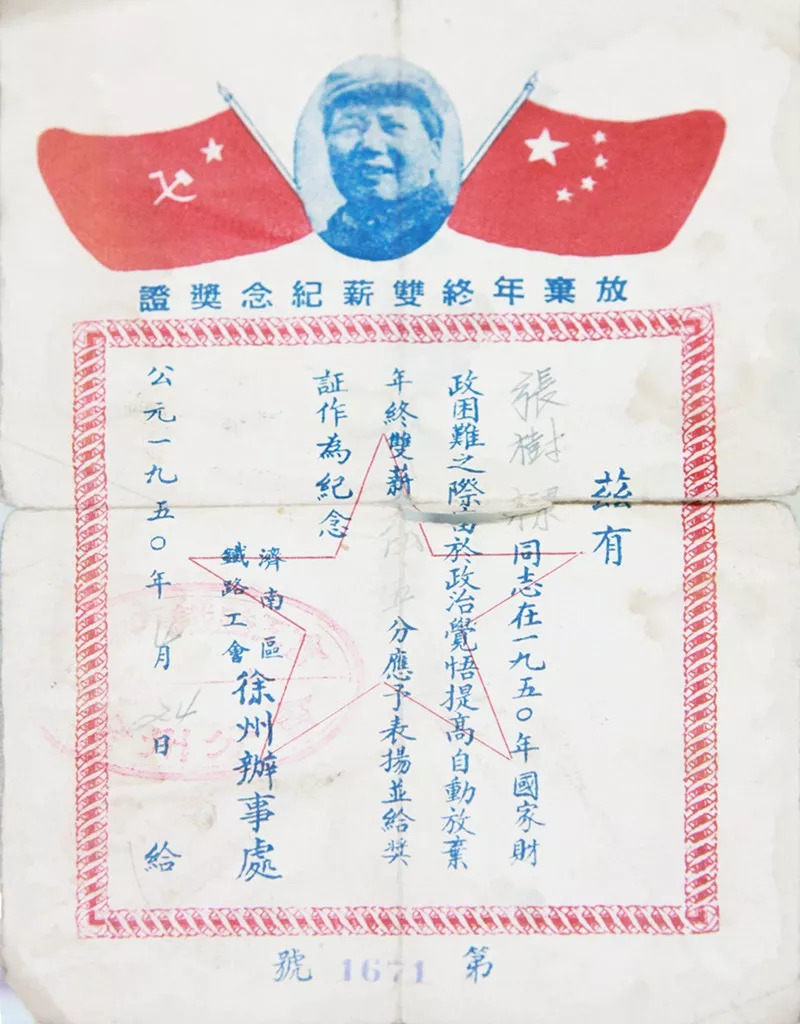 放棄年終雙薪紀念獎證
茲有
張樹 同志在一九五〇年國家財
政困難之際由於政治覺悟提高自動放棄
年終雙薪 分應予表揚並給獎
証作為紀念
濟南區
鐵路工會
徐州辦事處
公元一九五〇年 月24日 給
第1671號